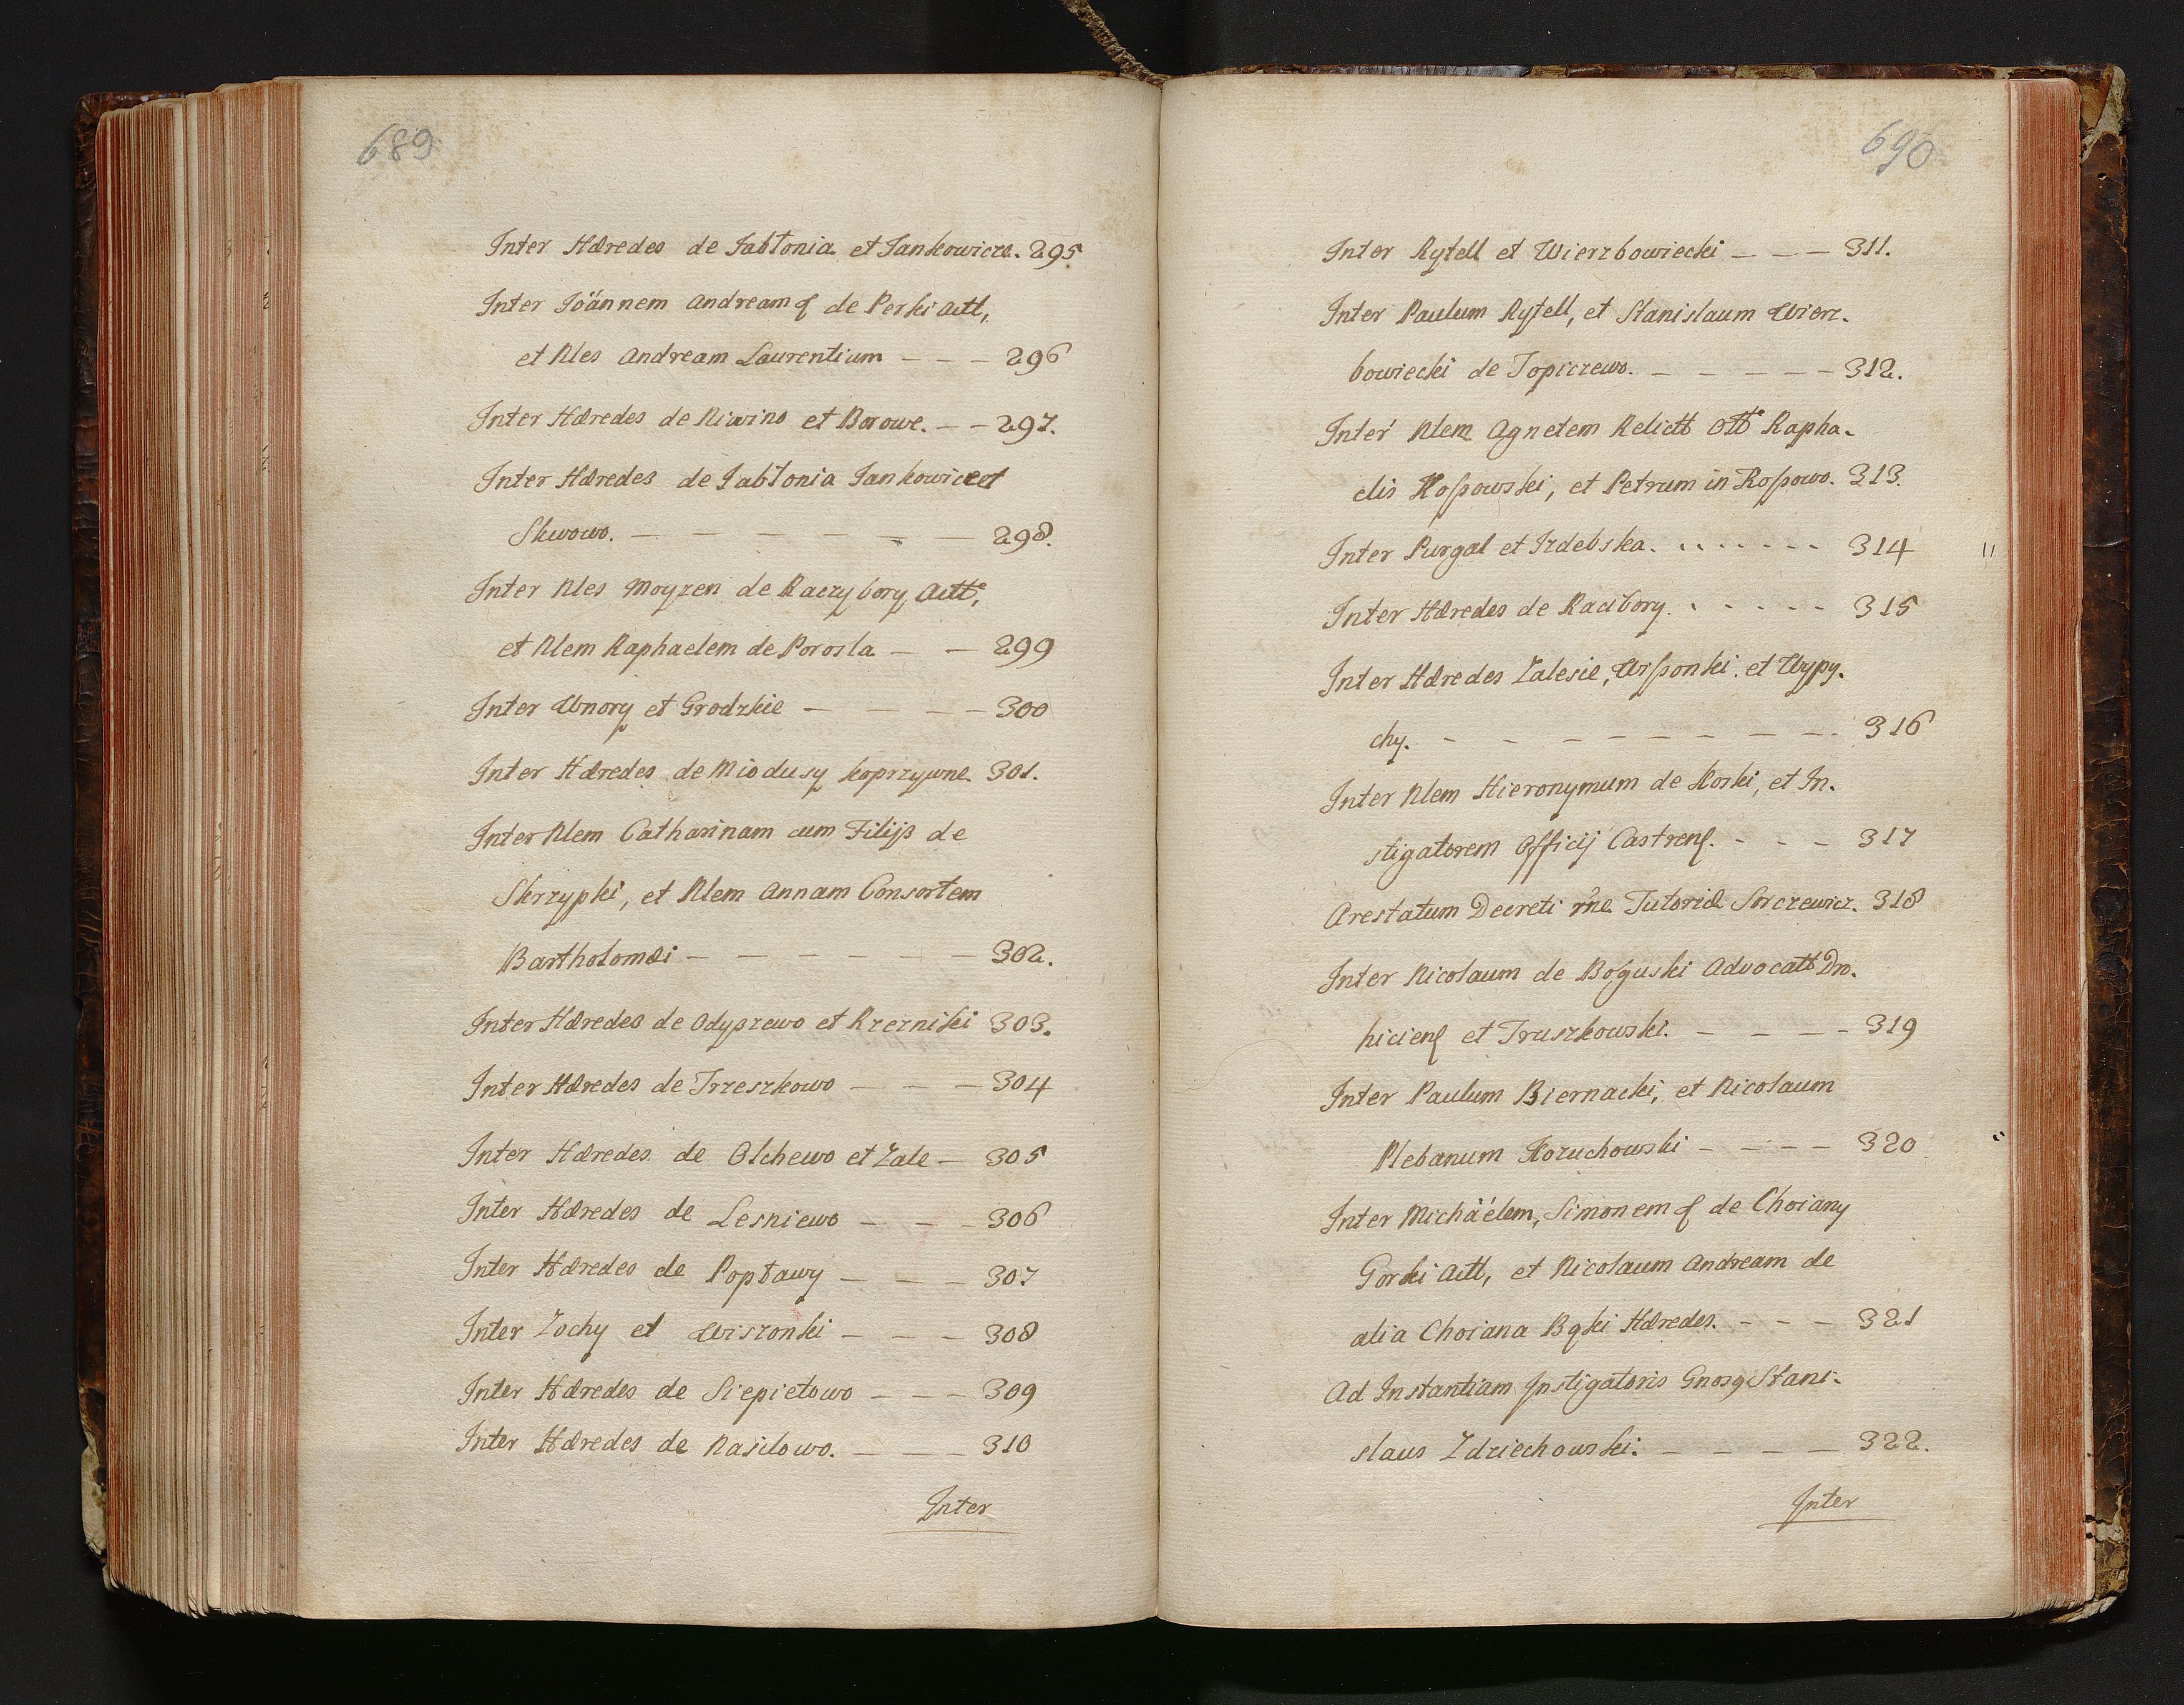 689
Inter Hæredes de Jabłonia et Jankowicze. 295
Inter Joännem Andreamq de Perki Actt,
et Nles Andream Laurentium - - - 296
Inter Hæredes de Niwino et Borowe. - - 297.
Inter Hæredes de Jabłonia Jankowice et
Skwowo. - - - - - - - 298.
Inter Nles Moyzen de Raczybory Actt,
et Nlem Raphaelem de Porosla - - 299
Inter Wnory et Grodzkie - - - - 300
Inter Hæredes de Miodusy koprzywne 301.
Inter Nlem Catharinam cum Filijs de
Skrzypki, et Nlem Annam Consortem
Bartholomæi - - - - - - 302.
Inter Hæredes de Odyszewo et Krzezniki 303.
Inter Hæredes de Trzeszkowo - - - 304
Inter Hæredes de Olchewo et Zale - 305
Inter Hæredes de Lesniewo - - - 306
Inter Hæredes de Popławy - - - 307
Inter Zochy et Wiszonki - - - 308
Inter Hæredes de Siepietowo - - - 309
Inter Hæredes de Nasiłowo. - - - 310
Inter
690
Inter Rytell et Wierzbowiecki - - - 311.
Inter Paulum Rytell, et Stanislaum Wierz-
bowiecki de Topiczewo. - - - - - 312.
Inter Nlem Agnetem Relictt Ott Rapha-
elis Kossowski, et Petrum in Kossowo. 313.
Inter Purgal et Izdebska. - - - - - - 314
Inter Hæredes de Racibory. - - - - - 315
Inter Hæredes Zalesie, Wissonki. et Wypy-
chy. - - - - - - - - 316
Inter Nlem Hieronymum de Koski, et In-
stigatorem Officij Castrenq. - - - 317
Arestatum Decreti rne Tutoriæ Sorczewicz. 318
Inter Nicolaum de Boguski Advocatt Dro-
hicienq et Truszkowski. - - - - 319
Inter Paulum Biernacki, et Nicolaum
Plebanum Kozuchowski - - - - 320
Inter Michäélem, Simonemq de Choiany
Gorski Actt, et Nicolaum Andream de
alia Choiana Bąki Hæredes. - - - 321
Ad Instantiam Instigatoris Gnosq Stani-
slaus Zdziechowski. - - - - 322.
Inter